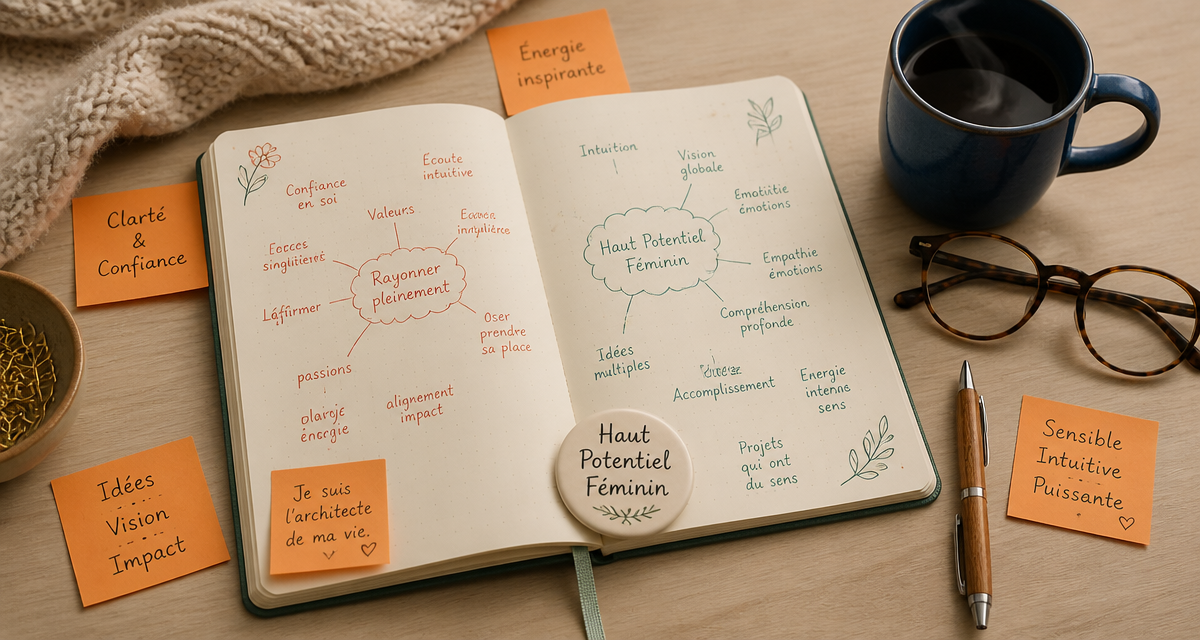 Énergie
inspirante
Clarté
&
Confiance
Idées
Vision
Impact
Confiance
en soi
Écoute
intuitive
Valeurs
Rayonner
pleinement
Oser
prendre
sa place
passions
énergie
alignement
impact
Je suis
l'architecte
de ma vie.
Intuition
Vision
globale
émotions
Haut Potentiel
Féminin
Empathie
émotions
Compréhension
profonde
Idées
multiples
Accomplissement
Energie
intense
sens
Projets
qui ont
du sens
Haut
Potentiel
Féminin
Sensible
Intuitive
Puissante